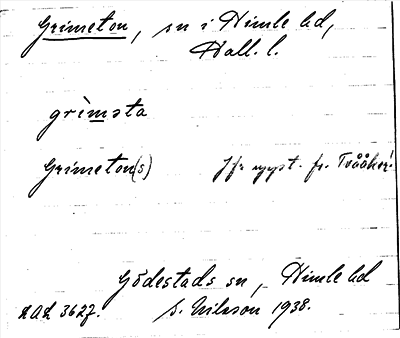 Grimeton, sn i Himle hd,
Hall. l.
grimsta
Grimeton(s) Jfr uppt. fr. Tvååker!
Gödestads sn, Himle hd
LAL 3627. S. Nilsson 1938.